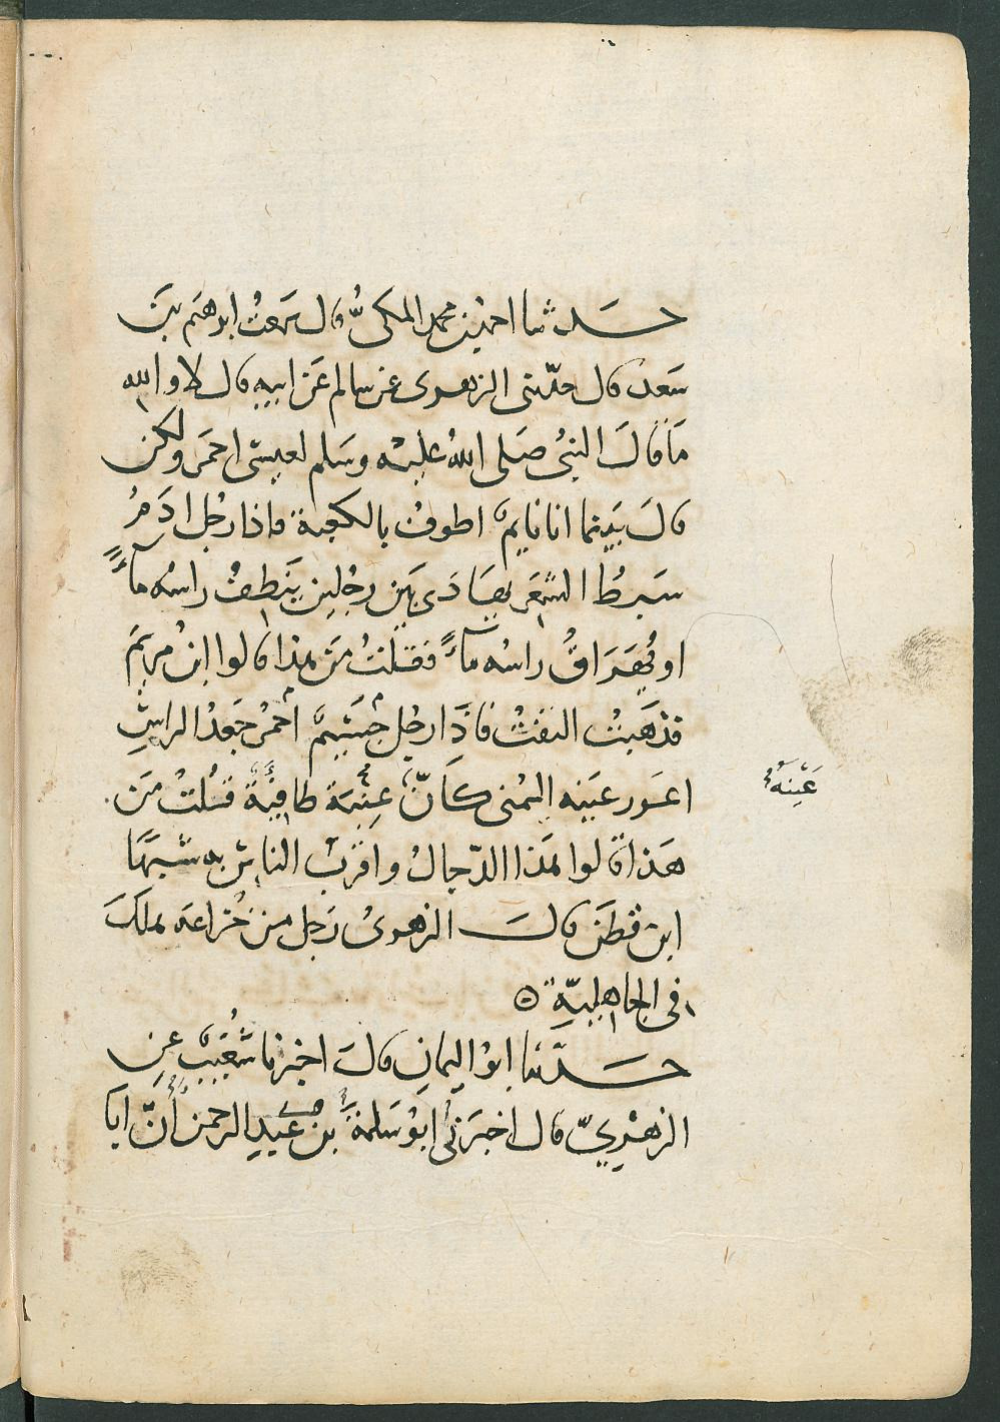 حدثنا احمد بن محمد المكىُّ قال سَمعتُ ابرهيم بنَ
سَعد قال حدّثنى الزهرى عن سالم عَن ابيه قال لا والله
مَا قالَ النبىُ صَلى اللهُ عليْه وسَلم لعيسَى احمَر ولكن
قالَ بَينما انا نايمٌ اطوفُ بالكعبة فاذا رجُل ادَمُ
سَبطُ الشَعَر يهَادَى بَين رجُلين يَنَطفُ راسُه ماءً
او يُهَرَاقُ راسُه ماءً فقلتُ مَن هذا قالوا ابنُ مريَم
فذهَبتُ التفتُ فاذَا رجُل جَسَيمٌ احمرُ جَعدُ الراسِ
اعَور عَينه اليُمنى كاَنّ عِنَبَة طافِيَةٌ قُلتُ مَن
عَيْنَهُ
هَذا قالوا هَذا الدّجالُ واقرَبُ الناسِ به شَبَهًا
ابن قَطَن قالَ الزهرىُ رَجل من خُزاعَه هلكَ
فى الجاهليّةِ ه
حدّثنا ابوُ اليمانِ قالَ اخبرنا شُعَيبٌ عنِ
الزهْرِيّ قال اخبَرَنى ابوُ سَلمة بن عَبدِ الرحمن أنَّ ابَا